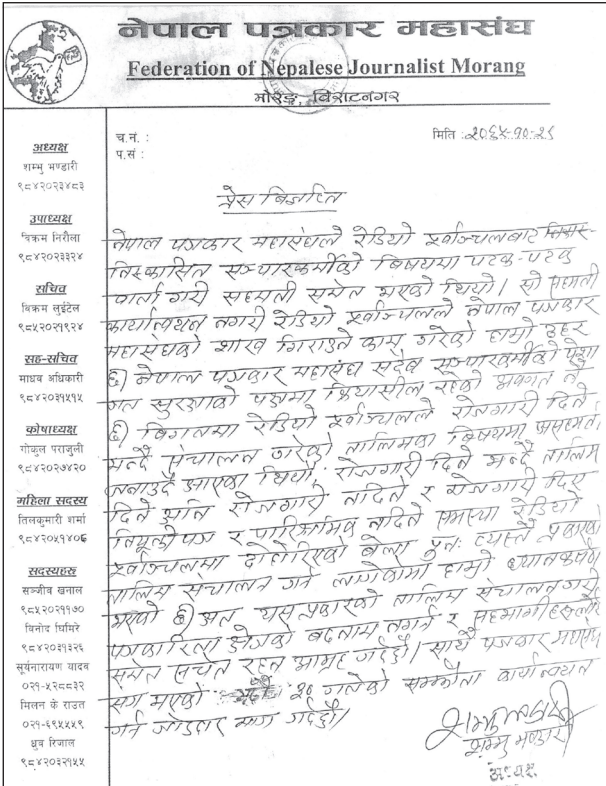 नेपाल पत्रकार महासंघ
Federation of Nepalese Journalist Morang
मोरङ, विराटनगर
च.नं. :
प.सं :
मिति : २०६५-१०-२९
अध्यक्ष
शम्भु भण्डारी
९८४२०२३४८३
उपाध्यक्ष
विक्रम निरौला
९८४२०२३३२४
सचिव
विक्रम लुईटेल
९८५२०२१९२४
सह-सचिव
माधव अधिकारी
९८४२०३१५१५
कोषाध्यक्ष
गोकुल पराजुली
९८४२०२७४२०
महिला सदस्य
तिलकुमारी शर्मा
९८४२०५१४०६
सदस्यहरु
सञ्जीव खनाल
९८५२०२११७०
विनोद घिमिरे
९८४२०३१३२६
सूर्यनारायण यादव
०२१-५२८८३२
मिलन के राउत
०२१-६९५५५९
ध्रुव रिजाल
९८४२०३२१५५
प्रेस विज्ञप्ति
नेपाल पत्रकार महासंघले रेडियो पूर्वाञ्चलबाट
निस्कासित सञ्चारकर्मीको विषयमा पटक-पटक
वार्ता गरी सहमती समेत भएको थियो। सो सहमती
कार्यान्वयन नगरी रेडियो पूर्वाञ्चलले नेपाल पत्रकार
महासंघको शाख गिराउने काम गरेको हाम्रो ठहर
छ। नेपाल पत्रकार महासंघ सदैव सञ्चारकर्मीको पेशा
गत सुरक्षाको पक्षमा क्रियासील रहेको अवगत नै
छ। विगतमा रेडियो पूर्वाञ्चलले रोजगारी दिने
भन्दै संचालन गरेको तालिमका विषयमा असहमती
जनाउदै आएका थियौं। रोजगारी दिने भन्दै तालिम
दिने अनि रोजगारी नदिने र रोजगारी दिए
नियूक्तीपत्र र पारिश्रमिक नदिने समस्या रेडियो
पूर्वाञ्चलमा दोहोरिएको बेला पुनः त्यस्तै प्रकारको
तालिम संचालन गर्न लागेकोमा हाम्रो ध्यानाकर्षण
भएको छ। अतः यस प्रकारको तालिम संचालन गरी
पत्रकारिता क्षेत्रको बदनाम नगर्न र सहभागीहरूलाई
समेत सचेत रहन आग्रह गर्दछौं। साथै पत्रकार महासंघ
सँग भएको २० गतेको सम्झौता कार्यान्वयन
गर्न जोडदार माग गर्दछौं।
शम्भु भण्डारी
अध्यक्ष